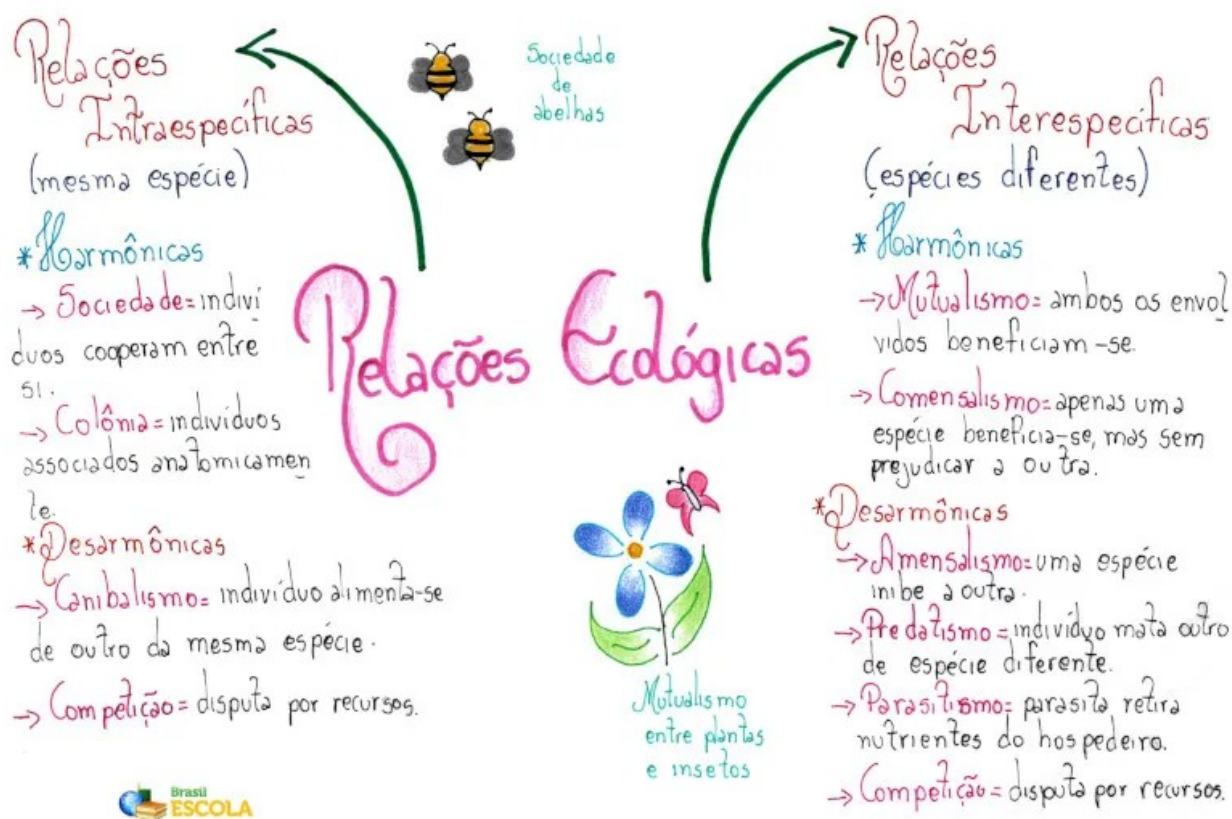 Relações
Intraespecíficas
(mesma espécie)
*Harmônicas
→ Sociedade= indiví
duos cooperam entre
si.
→ Colônia= indivíduos
associados anatomicamen
te.
*Desarmônicas
→ Canibalismo= indivíduo alimenta-se
de outro da mesma espécie.
→ Competição= disputa por recursos.
Sociedade
de
abelhas
Relações Ecológicas
Mutualismo
entre plantas
e insetos
Relações
Interespecíficas
(espécies diferentes)
* Harmônicas
→Mutualismo= ambos os envol
vidos beneficiam-se.
→Comensalismo= apenas uma
espécie beneficia-se, mas sem
prejudicar a outra.
*Desarmônicas
→Amensalismo= uma espécie
inibe a outra.
→Predatismo= indivíduo mata outro
de espécie diferente.
→Parasitismo= parasita retira
nutrientes do hospedeiro.
→Competição= disputa por recursos.
Brasil
ESCOLA